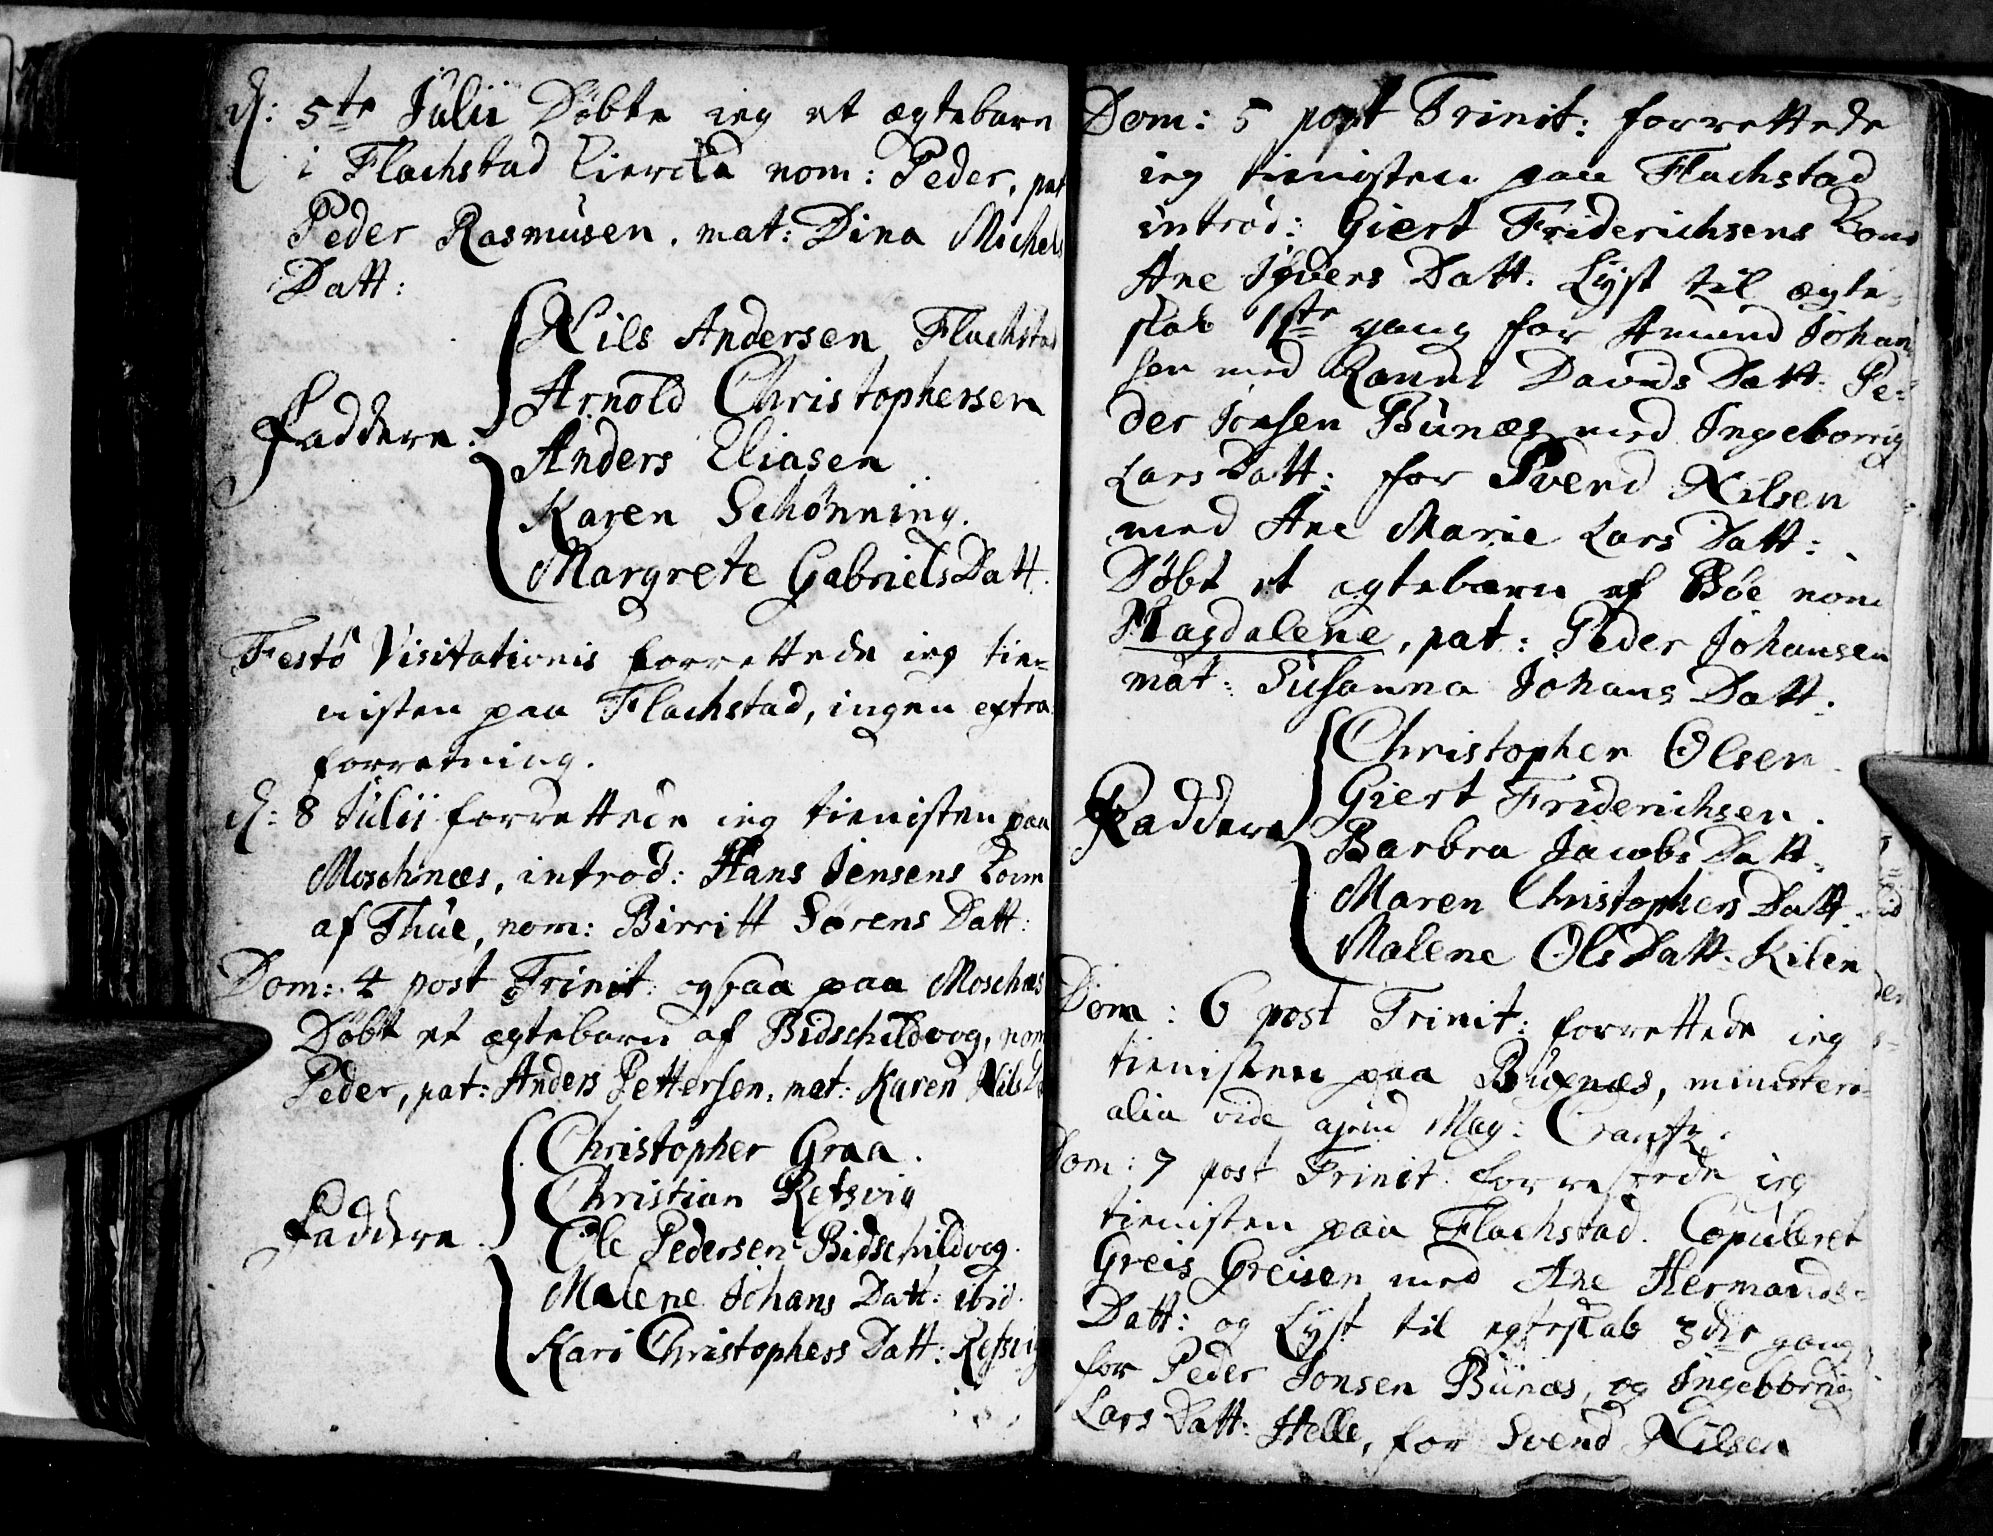 d: 5te Julii Døbte ieg et ægtebarn
i Flachstad Kiercke nom: Peder, pat
Peder Rasmusen, mat: Dina Michels
Datt:
Nils Andersen Flachstad
Arnold Christophersen
Faddere: Anders Eliasen
Karen Schønning.
Margrete GabrielsDatt.
Festo Visitationis forrettede ieg tie-
nisten paa Flachstad, ingen extra
forretning.
d: 8 Julii forrettede ieg tienisten paa
Moschnæs, introd: Hans Jensens Kone
af Thue, nom: Birritt Sørens Datt:
Dom: 4 post Trinit: ogsaa paa Moschnæs
Døbt et ægtebarn af Bidschildvog, nom
Peder, pat: Anders Pettersen, mat: Karen Nils D
Christopher Graa.
Christian Refsvig
Faddere. Ole Pedersen Bidschildvog.
Malene Johans Datt: ibid.
Kari Christophers Datt: Refsvig
Dom: 5 post Trinit: forrettede
ieg tienisten paa Flachstad
introd: Giert Friderichsens Kone
Ane Ifvers Datt. Lyst til ægte-
skab 1ste gang for Amund Johan
sen med Ranni Davids Datt. Pe-
der Jonsen Bunæs med Ingeborrig
Lars Datt: for Svend Nilsen
med Ane Marie Lars Datt:
Døbt et ægtebarn af Bøe nom
Magdalene, pat: Peder Johansen
mat: Susanna Johans Datt.
Christopher Olsen.
Giert Friderichsen.
Faddere Barbra Jacobs Datt.
Maren Christophers Datt.
Malene Ols Datt. Kilen
Dom: 6 post Trinit: forrettede ieg
tienisten paa Buxnæs, ministeri-
alia vide apud Mag:
Dom: 7 post Trinit. forrettede ieg
tienisten paa Flachstad. Copuleret
Greis Greisen med Ane Hermands-
Datt: og Lyst til egteskab 3die gang
for Peder Jonsen Bunæs, og Ingeborrig
Lars Datt: Helle, for Svend Nilsen